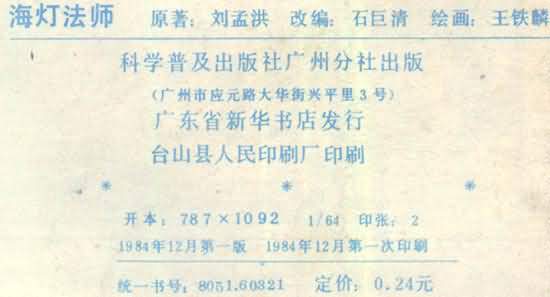 海灯法师 原著：刘孟洪 改编：石巨清 绘画：王铁麟
科学普及出版社广州分社出版
（广州市应元路大华街兴平里3号）
广东省新华书店发行
台山县人民印刷厂印刷
* * *
开本：787×1092 1/64 印张：2
1984年12月第一版 1984年12月第一次印刷
统一书号：8051.60321 定价：0.24元